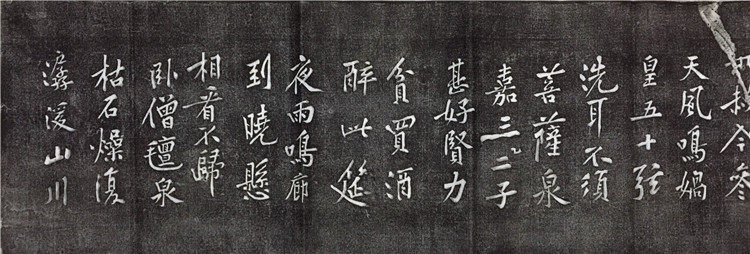 赦今參
天風鳴媧
皇五十弦
洗耳不須
菩薩泉
嘉三二子
甚好賢力
貧買酒
醉此筵
夜雨鳴廊
到曉懸
相看不歸
臥僧氈泉
枯石燥復
潺湲山川